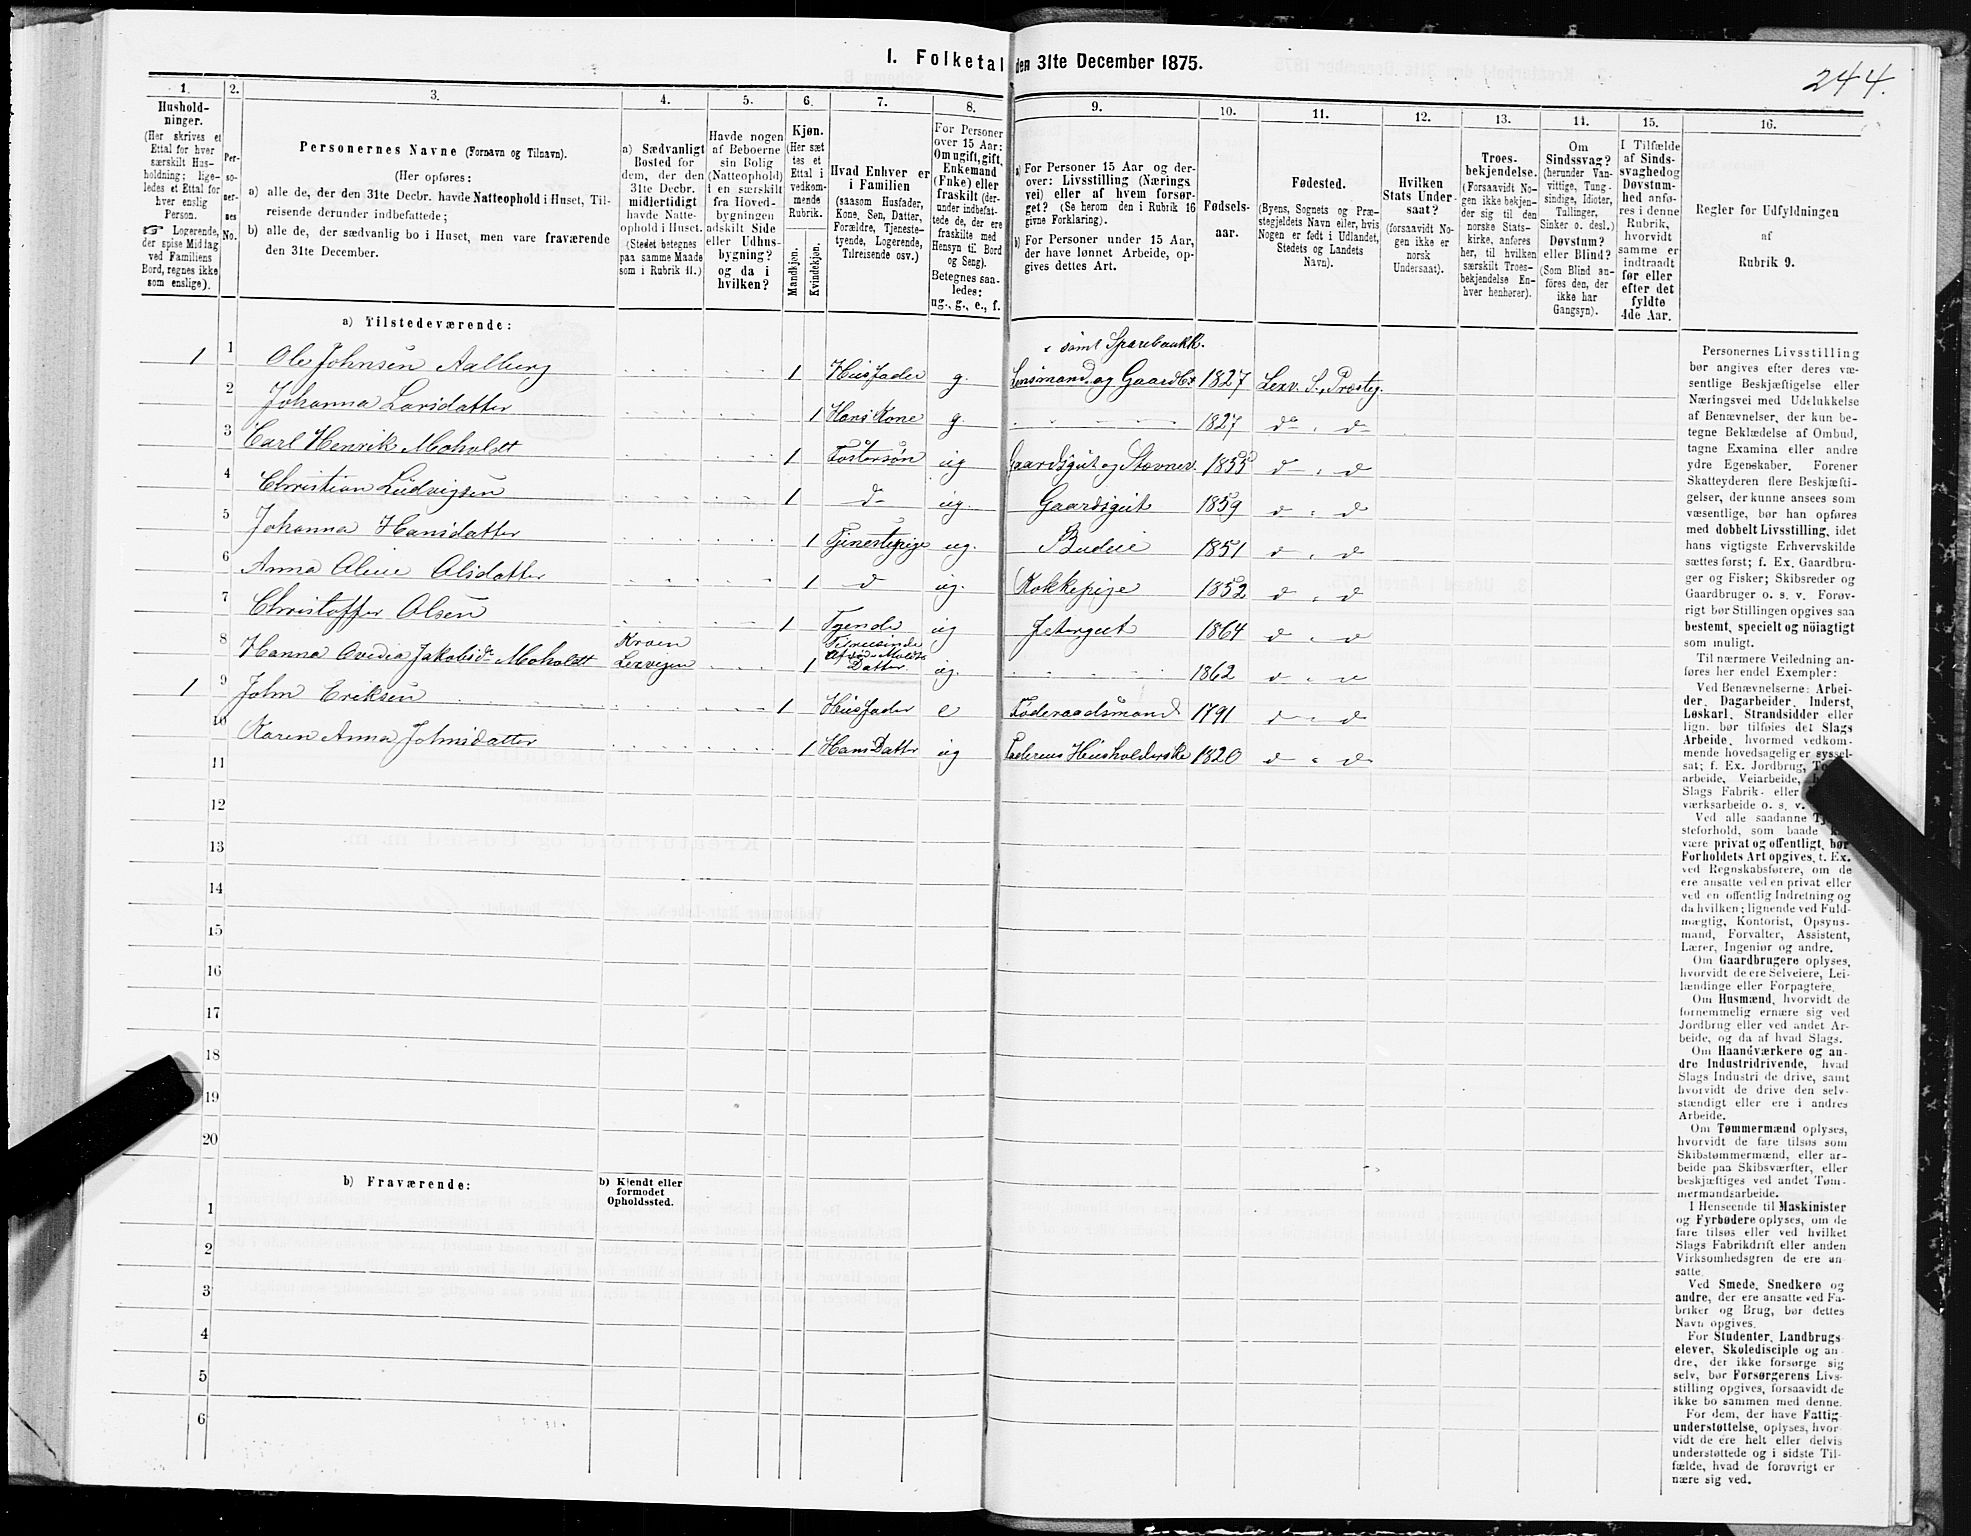 I. Folketal den 31te December 1875.
244.
1. 2. 3. 4. 5. 6. 7. 8. 9. 10. 11. 12. 13. 14. 15. 16.
Hushold-
ninger.
(Her skrives et
Ettal for hver
særskilt Hus-
holdning; lige-
ledes et Ettal for
hver enslig
Person.
☞ Logerende,
der spise Middag
ved Familiens
Bord, regnes ikke
som enslige).
Per-
so-
ner-
nes
No.
Personernes Navne (Fornavn og Tilnavn).
(Her opføres:
a) alle de, der den 31te Decbr. havde Natteophold i Huset, Til-
reisende derunder indbefattede;
b) alle de, der sædvanlig bo i Huset, men vare fraværende
den 31te December.
a) Sædvanligt
Bosted for
dem, der den
31te Decbr.
midlertidigt
havde Natte-
ophold i Huset.
(Stedet betegnes
paa samme Maade
som i Rubrik 11.)
Havde nogen
af Beboerne
sin Bolig
(Natteophold)
i en særskilt
fra Hoved-
bygningen
adskilt Side
eller Udhus-
bygning?
og da i
hvilken?
Kjøn.
(Her sæt
tes et
Ettal i
vedkom-
mende
Rubrik.
Mandkjøn.
Kvindekjøn.
Hvad Enhver er
i Familien
(saasom Husfader,
Kone, Søn, Datter,
Forældre, Tjeneste-
tyende, Logerende,
Tilreisende osv.)
For Personer
over 15 Aar:
Om ugift, gift,
Enkemand
(Enke) eller
fraskilt (der-
under indbefat-
tede de, der ere
fraskilte med
Hensyn til Bord
og Seng).
Betegnes saa-
ledes:
ug., g., e., f.
a) For Personer 15 Aar og der-
over: Livsstilling (Nærings
vei) eller af hvem forsør-
get? (Se herom den i Rubrik 16
givne Forklaring).
b) For Personer under 15 Aar,
der have lønnet Arbeide, op-
gives dettes Art.
Fødsels-
aar.
Fødested.
(Byens, Sognets og Præ-
stegjeldets Navn eller, hvis
Nogen er født i Udlandet,
Stedets og Landets
Navn).
Hvilken
Stats Under
saat?
(forsaavidt No-
gen ikke er
norsk
Undersaat).
Troes-
bekjendelse.
(Forsaavidt No-
gen ikke bekjen-
der sig til den
norske Stats-
kirke, anføres
her, til hvilken
særskilt Troes-
bekjendelse En-
hver henhører).
Om
Sindssvag?
(herunder Van-
vittige, Tung-
sindige, Idioter,
Tullinger,
Sinker o. desl.)
Døvstum?
eller Blind?
(Som Blind an-
føres den, der
ikke har
Gangsyn).
I Tilfælde
af Sinds-
svaghed og
Døvstum-
hed anfø-
res i denne
Rubrik,
hvorvidt
samme er
indtraadt
før eller
efter det
fyldte
4de Aar.
Regler for Udfyldningen
af
Rubrik 9.
a) Tilstedeværende:
samt Sparebankk.
1 1 Ole Johnsen Aalberg 1 Husfader g. Lensmand og Gaardbr 1827 Lexv. S., Præsteg.
2 Johanna Larsdatter 1 Hans Kone g. 1827 do " d
3 Carl Henrik Moholdt 1 Fostersøn ug Gaardsgut og Stævnev. 1855 d " d
4 Christian Ludvigsen 1 d ug. Gaardsgut 1859 d " d
5 Johanna Hansdatter 1 Tjenestepige ug. Budeie 1851 d " d
6 Anna Oline Olsdatter 1 d ug. Kokkepige 1852 d " d
7 Christoffer Olsen 1 Tyende ug Jetergut 1864 d " d
8 Hanna Ovedia Jakobsdr Moholdt Kroen Lexvigen 1 Datter. ug. 1862 d " d
1 9 John Eriksen 1 Husfader e Føderaadsmand 1791 d " d
10 Karen Anna Johnsdatter 1 Hans Datter ug Faderens Husholderske 1820 d " d
11
12
13
14
15
16
17
18
19
20
b) Fraværende:
b) Kjendt eller
formodet
Opholdssted.
1
2
3
4
5
6
Personernes Livsstilling
bør angives efter deres væ-
sentlige Beskjæftigelse eller
Næringsvei med Udelukkelse
af Benævnelser, der kun be-
tegne Beklædelse af Ombud,
tagne Examina eller andre
ydre Egenskaber. Forener
Skatteyderen flere Beskjæfti-
gelser, der kunne ansees som
væsentlige, bør han opføres
med dobbelt Livsstilling, idet
hans vigtigste Erhvervskilde
sættes først; f. Ex. Gaardbru-
ger og Fisker; Skibsreder og
Gaardbruger o. s. v. Forøv-
rigt bør Stillingen opgives saa
bestemt, specielt og nöiagtigt
som muligt.
Til nærmere Veiledning an-
føres her endel Exempler:
Ved Benævnelserne: Arbei-
der, Dagarbeider, Inderst,
Løskarl, Strandsidder eller
lign. bør tilføies det Slags
Arbeide, hvormed vedkom-
mende hovedsagelig er syssel-
sat; f. Ex. Jordbrug,
arbeide, Veiarbeide,
Slags Fabrik- eller
værksarbeide o. s. v.
Ved alle saadanne
steforhold, som baade
være privat og offentligt, bør
Forholdets Art opgives, t. Ex.
ved Regnskabsførere, om de
ere ansatte ved en privat eller
ved en offentlig Indretning og
da hvilken; lignende ved Fuld-
mægtig, Kontorist, Opsyns-
mand, Forvalter, Assistent,
Lærer, Ingeniør og andre.
Om Gaardbrugere oplyses,
hvorvidt de ere Selveiere, Lei-
lændinge eller Forpagtere.
Om Husmænd, hvorvidt de
fornemmelig ernære sig ved
Jordbrug eller ved andet Ar-
beide, og da af hvad Slags.
Om Haandværkere og an-
dre Industridrivende, hvad
Slags Industri de drive, samt
hvorvidt de drive den selv-
stændigt eller ere i andres
Arbeide.
Om Tømmermænd oplyses,
hvorvidt de fare tilsøs som
Skibstømmermænd, eller ar-
beide paa Skibsværfter, eller
beskjæftiges ved andet Tøm-
mermandsarbeide.
I Henseende til Maskinister
og Fyrbødere oplyses, om de
fare tilsøs eller ved hvilket
Slags Fabrikdrift eller anden
Virksomhedsgren de ere an-
satte.
Ved Smede, Snedkere og
andre, der ere ansatte ved Fa-
briker og Brug, bør dettes
Navn opgives.
For Studenter, Landbrugs-
elever, Skoledisciple og an-
dre, der ikke forsørge sig
selv, bør Forsørgerens Livs-
stilling opgives, forsaavidt de
ikke bo sammen med denne.
For dem, der have Fattig-
understøttelse, oplyses, hvor-
vidt de ere helt eller delvis
understøttede og i sidste Til-
fælde, hvad de forøvrigt er
nære sig ved.